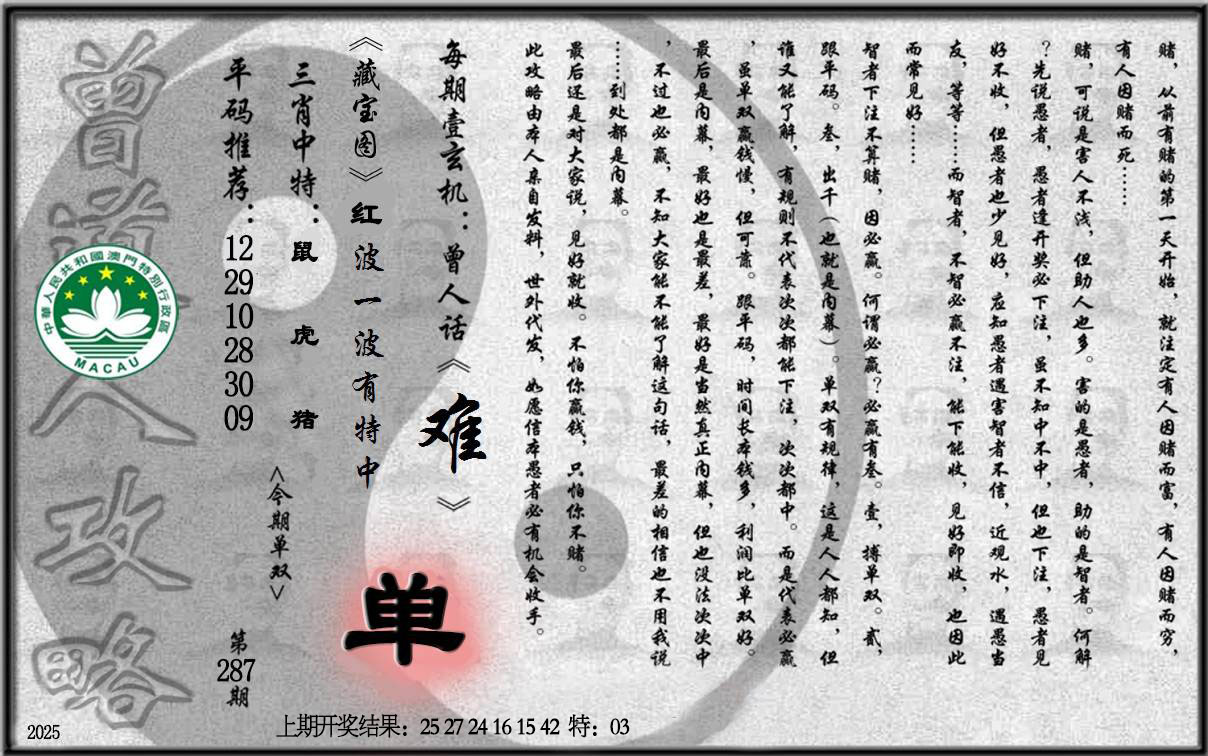 赌，从前有赌的第一天开始，就注定有人因赌而富，有人因赌而穷，
有人因赌而死……
赌，可说是害人不浅，但助人也多。害的是愚者，助的是智者。何解
？先说愚者，愚者逢开奖必下注，虽不知中不中，但也下注，愚者见
好不收，但愚者也少见好，应知愚者遇害智者不信，近观水，遇愚当
友，等等……而智者，不智必赢不注，能下能收，见好即收，也因此
而常见好……
智者下注不算赌，因必赢。何谓必赢？必赢有叁。壹，搏单双。贰，
跟平码。叁，出千（也就是内幕）。单双有规律，这是人人都知，但
谁又能了解，有规则不代表次次都能下注，次次都中。而是代表必赢
，虽单双赢钱慢，但可靠。跟平码，时间长本钱多，利润比单双好。
最后是内幕，最好也是最差，最好是当然真正内幕，但也没法次次中
，不过也必赢，不知大家能不能了解这句话，最差的相信也不用我说
……到处都是内幕。
最后还是对大家说，见好就收。不怕你赢钱，只怕你不赌。
此攻略由本人亲自发料，世外代发，如愿信本愚者必有机会收手。
每期壹玄机：曾人话《难》
《藏宝图》红波一波有特中
单
三肖中特：鼠 虎 猪
<今期单双>
平码推荐：12 29 10 28 30 09
第287期
曾道人攻略
中華人民共和國澳門特別行政區
MACAU
2025
上期开奖结果：25 27 24 16 15 42 特：03